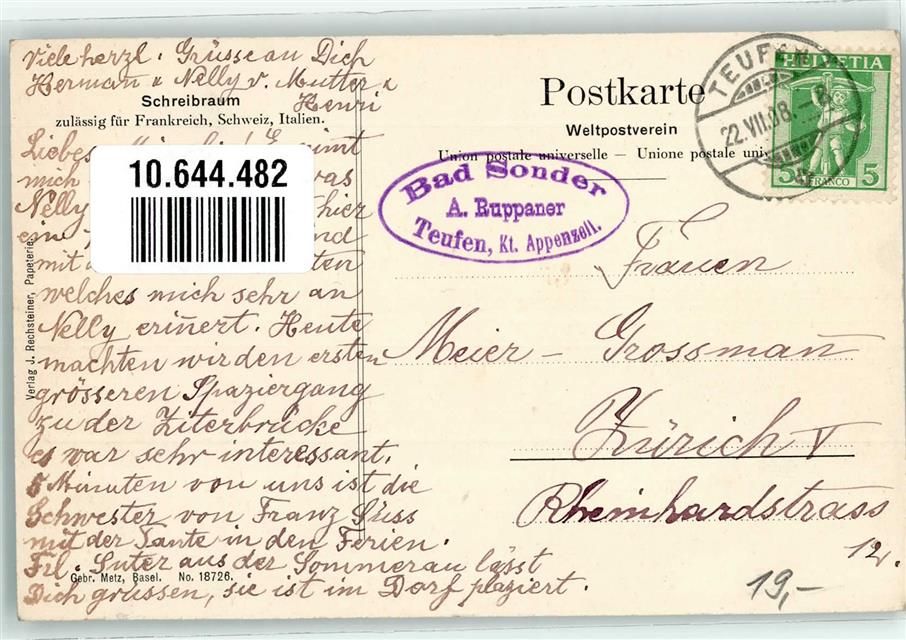 Viele herzl. Grüsse an Dich
Herman & Nelly v. Mutter &
Henri
Schreibraum
zulässig für Frankreich, Schweiz, Italien.
Postkarte
Weltpostverein
Union postale universelle — Unione postale
TEUFEN
22.VII.08.
HELVETIA
5 FRANCO 5
Bad Sonder
A. Ruppaner
Teufen, Kt. Appenzell.
10.644.482
Liebes
mich was
Nelly hier
ein und
mit
welches mich sehr an
Nelly erinert. Heute
machten wir den ersten
grösseren Spaziergang
zu der Ziterbrücke
es war sehr interessant.
5 Minuten von uns ist die
Schwester von Franz Süss
mit der Tante in den Ferien.
Frl. Suter aus der Sommerau lässt
Dich grüssen, sie ist im Dorf plaziert.
Verlag J. Rechsteiner, Papeterie.
Gebr. Metz, Basel. No. 18726.
Frauen
Meier - Grossman̄
Zürich V
Rheinhardstrass
12.
19,-